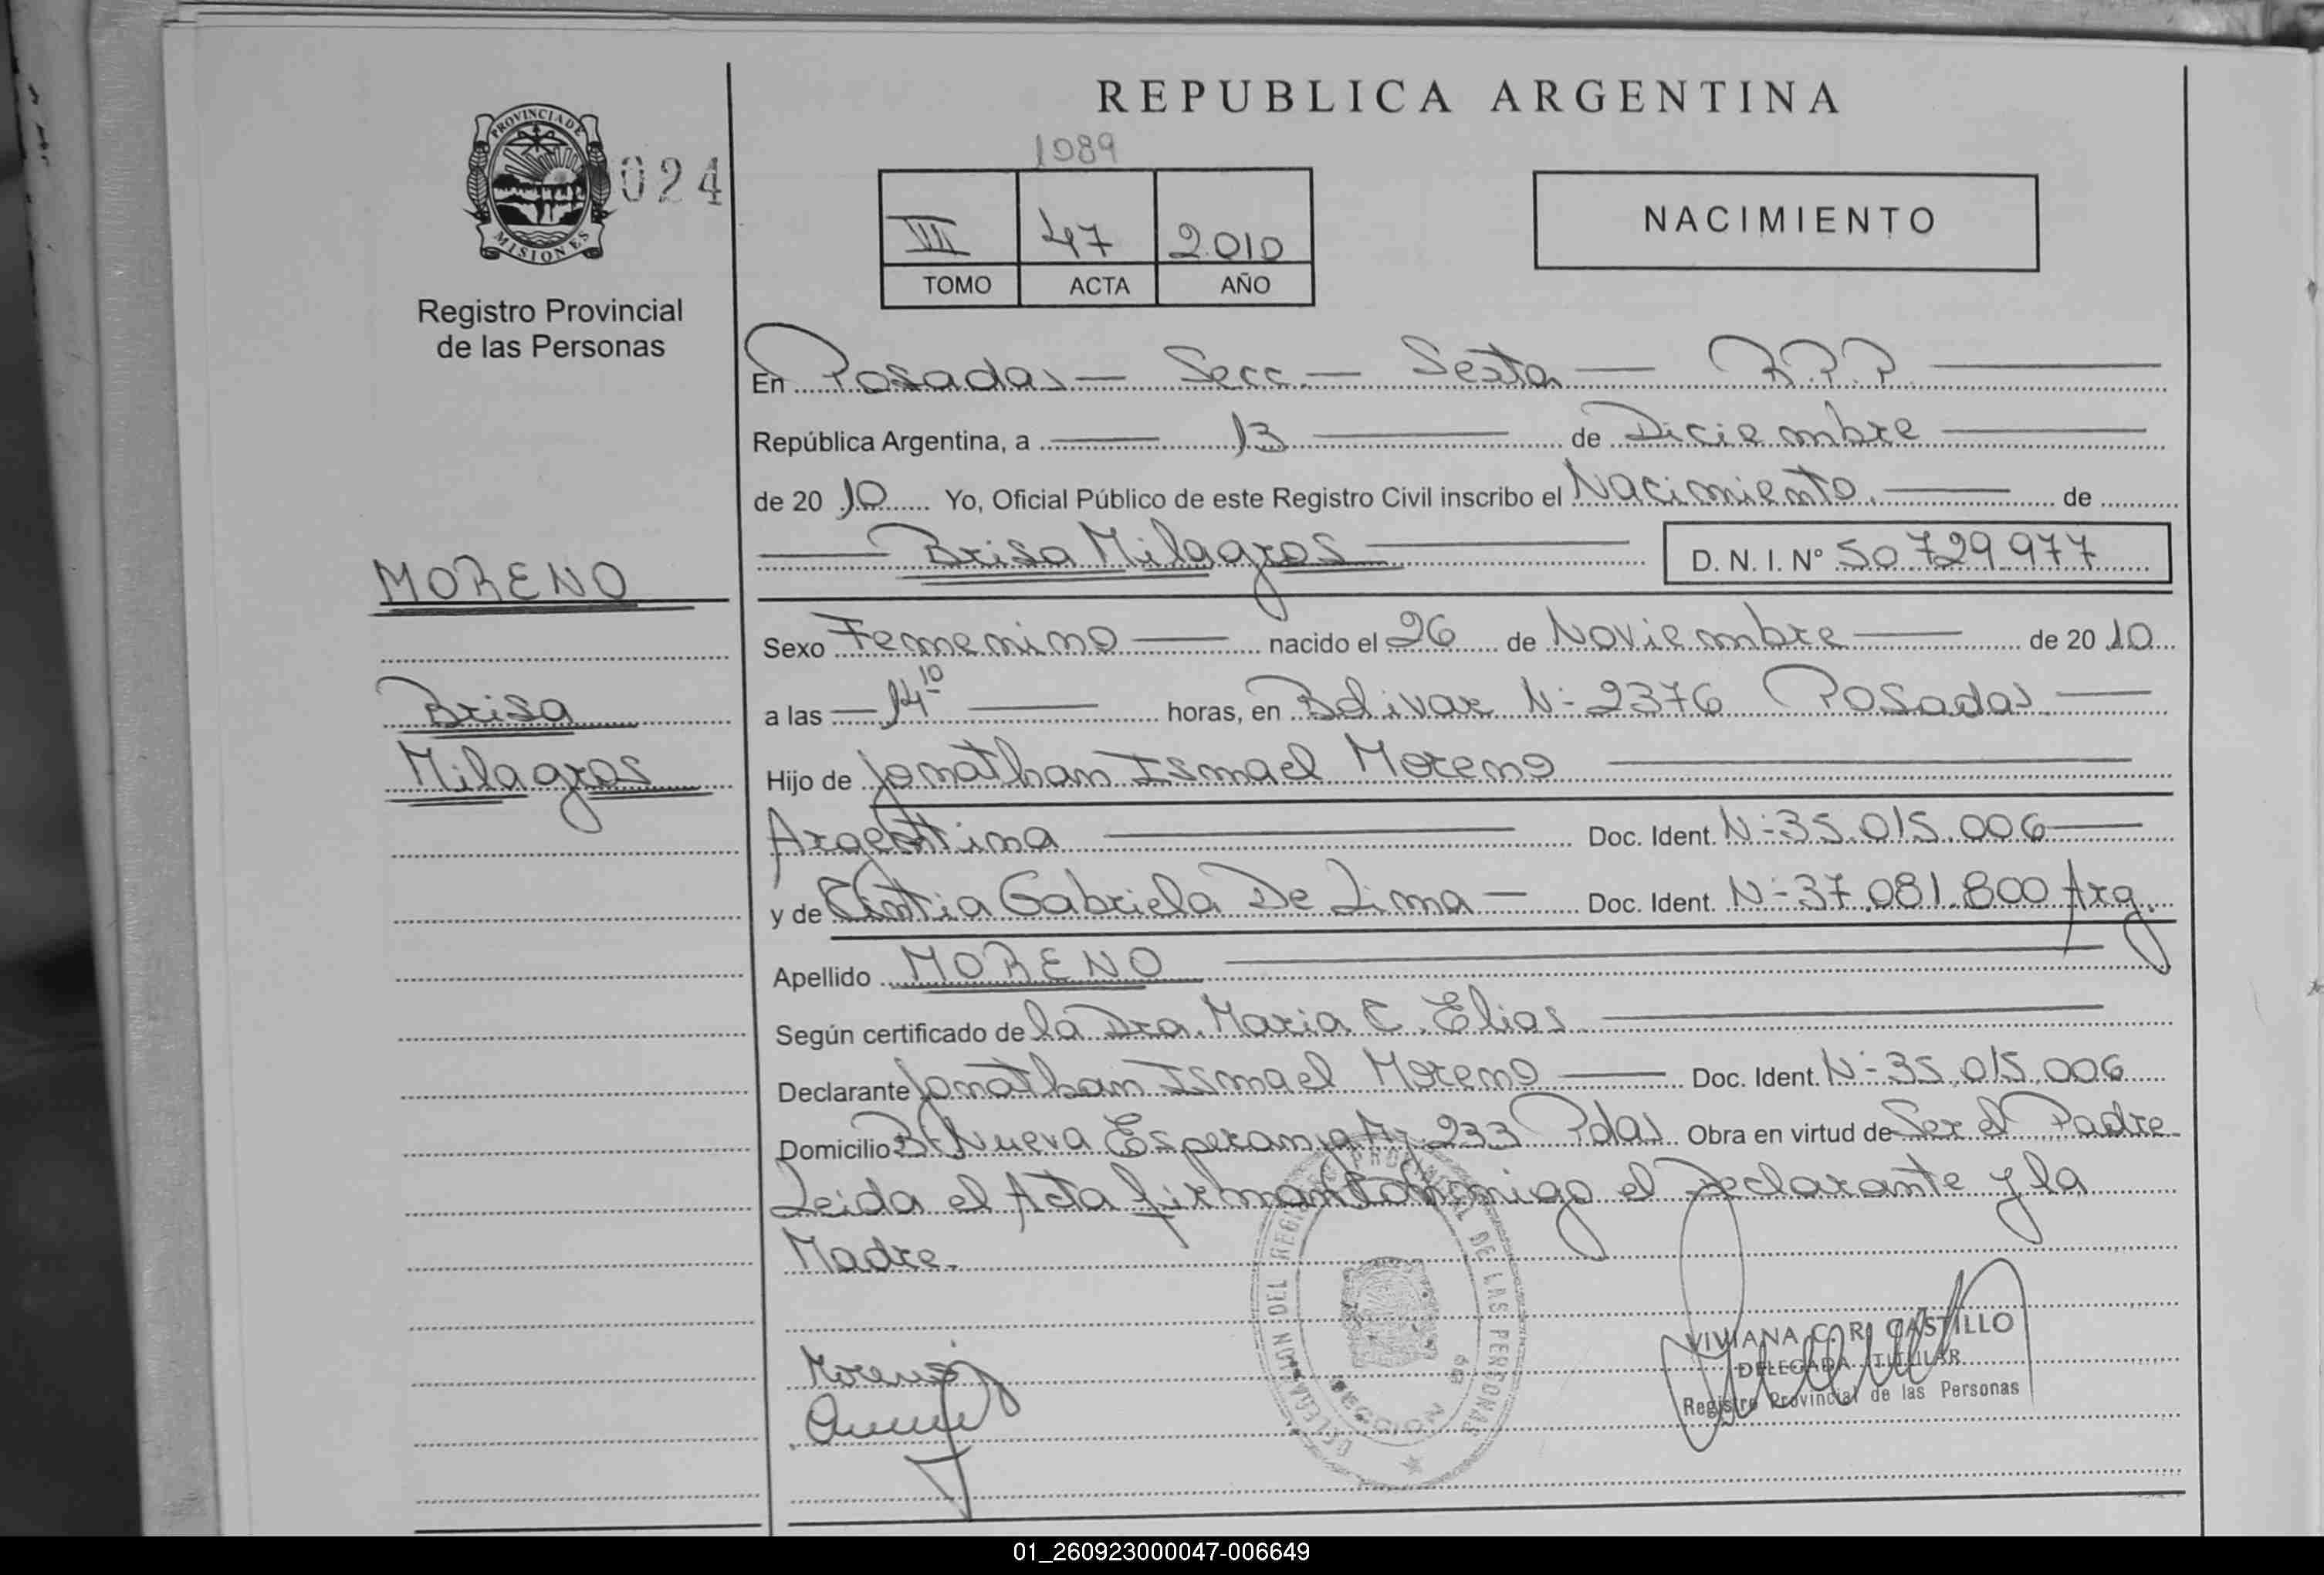 REPUBLICA ARGENTINA
PROVINCIA DE
MISIONES
024
Registro Provincial
de las Personas
1089
III 47 2.010
TOMO ACTA AÑO
NACIMIENTO
En Posadas — Secc. — Sexta — R.P.P.
República Argentina, a 13 de Diciembre
de 20 10 Yo, Oficial Público de este Registro Civil inscribo el Nacimiento. de
Brisa Milagros D. N. I. Nº 50 729 977
MORENO
Sexo Femenino nacido el 26 de Noviembre de 20 10
Brisa
a las 14 10 horas, en Bolivar N- 2376 Posadas
Milagros
Hijo de Jonathan Ismael Moreno
Argentina Doc. Ident. N- 35.015.006
y de Cintia Gabriela De Lima Doc. Ident. N- 37.081.800 Arg.
Apellido MORENO
Según certificado de la Dra. Maria C. Elias
Declarante Jonathan Ismael Moreno Doc. Ident. N- 35.015.006
Domicilio Bº Nueva Esperanza 233 Pdas Obra en virtud de Ser el Padre
Leida el Acta firman Conmigo el Declarante y la
Madre.
DELEGACION DEL REGISTRO PROVINCIAL DE LAS PERSONAS
SECCION 6ª
Moreno J
VIVIANA C. R. CASTILLO
DELEGADA TITULAR
Registro Provincial de las Personas
01_260923000047-006649